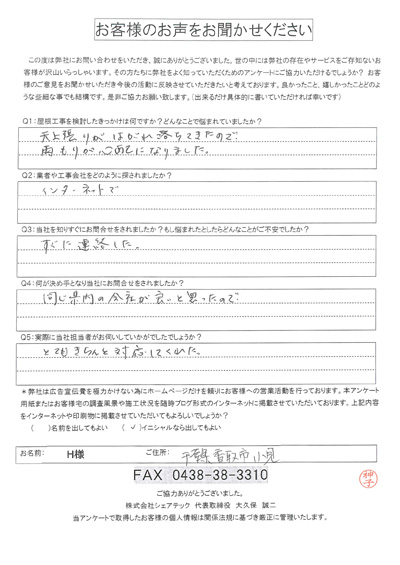 お客様のお声をお聞かせください
この度は弊社にお問い合わせをいただき、誠にありがとうございました。世の中には弊社の存在やサービスをご存知ないお
客様が沢山いらっしゃいます。その方たちに弊社をよく知っていただくためのアンケートにご協力いただけるでしょうか？ お客
様のご意見をお聞かせいただき今後の活動に反映させていただきたいと考えております。良かったこと、嬉しかったことどのよ
うな些細な事でも結構です。是非ご協力お願い致します。（出来るだけ具体的に書いていただければ幸いです）
Q1：屋根工事を検討したきっかけは何ですか？どんなことで悩まれていましたか？
天井張りがはがれ落ちてきたので
雨もりが心配になりました。
Q2：業者や工事会社をどのように探されましたか？
インターネットで
Q3：当社を知りすぐにお問合せをされましたか？もし悩まれたとしたらどんなことがご不安でしたか？
すぐに連絡した。
Q4：何が決め手となり当社にお問合せをされましたか？
同じ県内の会社が良いと思ったので
Q5：実際に当社担当者がお伺いしていかがでしたでしょうか？
とてもきちんと対応してくれた。
＊弊社は広告宣伝費を極力かけない為にホームページだけを頼りにお客様への営業活動を行っております。本アンケート
用紙またはお客様宅の調査風景や施工状況を随時ブログ形式のインターネットに掲載させていただいております。上記内容
をインターネットや印刷物に掲載させていただいてもよろしいでしょうか？
（　　）名前を出してもよい　（ ✓ ）イニシャルなら出してもよい
お名前： H様 ご住所： 千葉県香取市小見
FAX 0438-38-3310
ご協力ありがとうございました。
株式会社シェアテック 代表取締役 大久保 誠二
当アンケートで取得したお客様の個人情報は関係法規に基づき厳正に管理いたします。